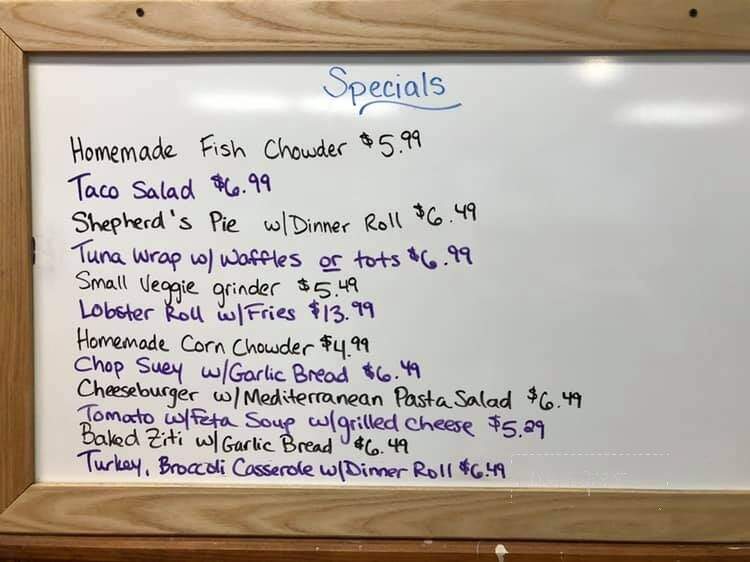 Specials
Homemade Fish Chowder $5.99
Taco Salad $6.99
Shepherd's Pie w/Dinner Roll $6.49
Tuna Wrap w/ Waffles or tots $6.99
Small Veggie grinder $5.49
Lobster Roll w/Fries $13.99
Homemade Corn Chowder $4.99
Chop Suey w/Garlic Bread $6.49
Cheeseburger w/Mediterranean Pasta Salad $6.49
Tomato w/Feta Soup w/grilled cheese $5.29
Baked Ziti w/Garlic Bread $6.49
Turkey, Broccoli Casserole w/Dinner Roll $6.49